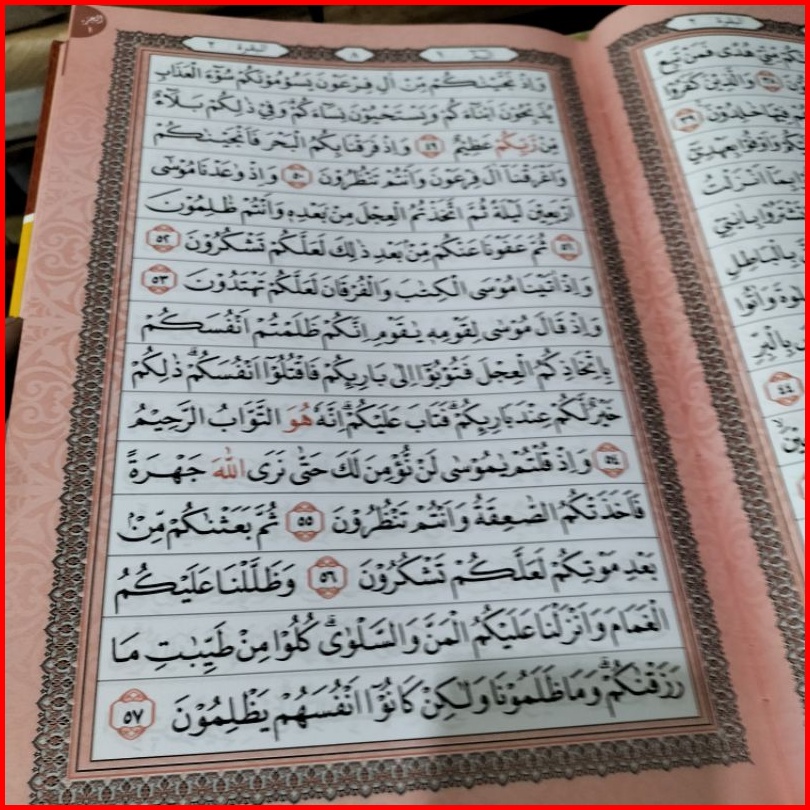 البقرة ٢
٨
الم ١
الجزء ١
وَاِذْ نَجَّيْنٰكُمْ مِّنْ اٰلِ فِرْعَوْنَ يَسُوْمُوْنَكُمْ سُوْٓءَ الْعَذَابِ
يُذَبِّحُوْنَ اَبْنَآءَكُمْ وَيَسْتَحْيُوْنَ نِسَآءَكُمْ وَفِيْ ذٰلِكُمْ بَلَآءٌ
مِّنْ رَّبِّكُمْ عَظِيْمٌ ٤٩ وَاِذْ فَرَقْنَا بِكُمُ الْبَحْرَ فَاَنْجَيْنٰكُمْ
وَاَغْرَقْنَآ اٰلَ فِرْعَوْنَ وَاَنْتُمْ تَنْظُرُوْنَ ٥٠ وَاِذْ وٰعَدْنَا مُوْسٰٓى
اَرْبَعِيْنَ لَيْلَةً ثُمَّ اتَّخَذْتُمُ الْعِجْلَ مِنْ بَعْدِهٖ وَاَنْتُمْ ظٰلِمُوْنَ
٥١ ثُمَّ عَفَوْنَا عَنْكُمْ مِّنْ بَعْدِ ذٰلِكَ لَعَلَّكُمْ تَشْكُرُوْنَ ٥٢
وَاِذْ اٰتَيْنَا مُوْسَى الْكِتٰبَ وَالْفُرْقَانَ لَعَلَّكُمْ تَهْتَدُوْنَ ٥٣
وَاِذْ قَالَ مُوْسٰى لِقَوْمِهٖ يٰقَوْمِ اِنَّكُمْ ظَلَمْتُمْ اَنْفُسَكُمْ
بِاتِّخَاذِكُمُ الْعِجْلَ فَتُوْبُوْٓا اِلٰى بَارِىِٕكُمْ فَاقْتُلُوْٓا اَنْفُسَكُمْۗ ذٰلِكُمْ
خَيْرٌ لَّكُمْ عِنْدَ بَارِىِٕكُمْۗ فَتَابَ عَلَيْكُمْۗ اِنَّهٗ هُوَ التَّوَّابُ الرَّحِيْمُ
٥٤ وَاِذْ قُلْتُمْ يٰمُوْسٰى لَنْ نُّؤْمِنَ لَكَ حَتّٰى نَرَى اللّٰهَ جَهْرَةً
فَاَخَذَتْكُمُ الصّٰعِقَةُ وَاَنْتُمْ تَنْظُرُوْنَ ٥٥ ثُمَّ بَعَثْنٰكُمْ مِّنْۢ
بَعْدِ مَوْتِكُمْ لَعَلَّكُمْ تَشْكُرُوْنَ ٥٦ وَظَلَّلْنَا عَلَيْكُمُ
الْغَمَامَ وَاَنْزَلْنَا عَلَيْكُمُ الْمَنَّ وَالسَّلْوٰىۗ كُلُوْا مِنْ طَيِّبٰتِ مَا
رَزَقْنٰكُمْۗ وَمَا ظَلَمُوْنَا وَلٰكِنْ كَانُوْٓا اَنْفُسَهُمْ يَظْلِمُوْنَ ٥٧
البقرة ٢
مِّنِّيْ هُدًى فَمَنْ تَبِعَ
٣٨ وَالَّذِيْنَ كَفَرُوْا
فِيْهَا خٰلِدُوْنَ ٣٩
وَاَوْفُوْا بِعَهْدِيْٓ
بِمَآ اَنْزَلْتُ
تَشْتَرُوْا بِاٰيٰتِيْ
بِالْبَاطِلِ
وَاٰتُوا
بِالْبِرِّ
٤٤